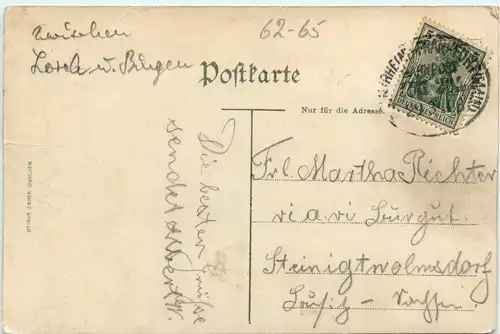 zwischen
Lorch u. Bingen
62-65
Postkarte
Nur für die Adresse.
Die besten Grüße
sendet Albert W.
Frl. Martha Richter
vi a. vi Burgut.
Steinigtwolmsdorf
Lausitz - Sachsen
DEUTSCHES REICH
5